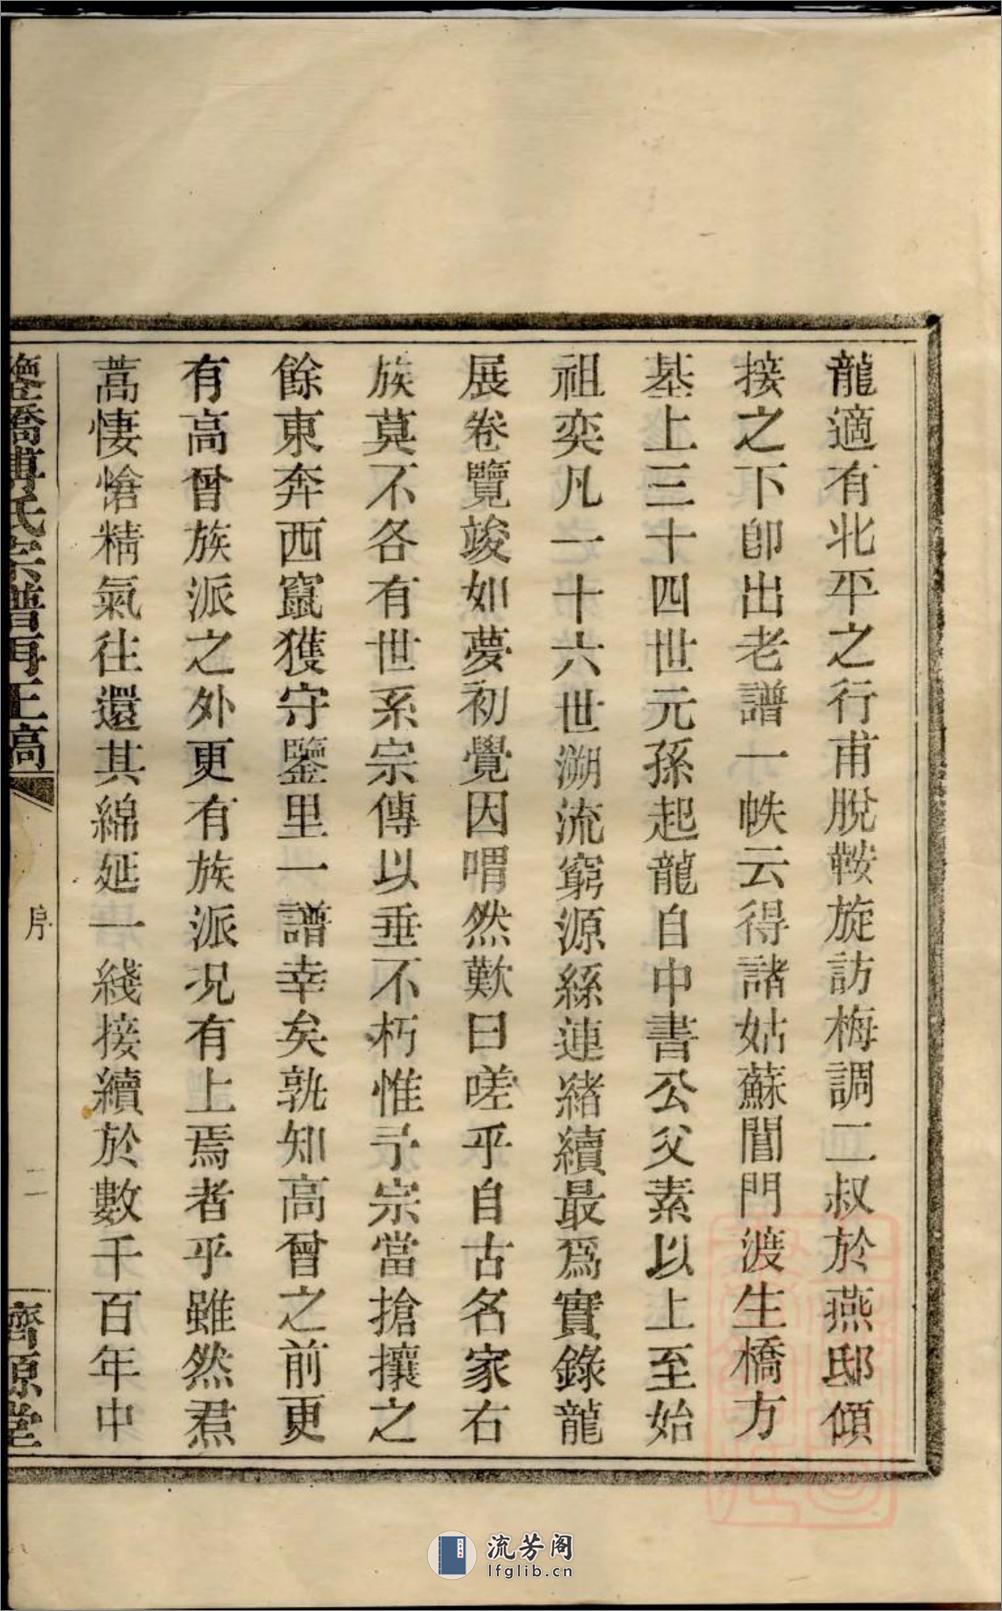 龍適有北平之行甫脫鞍旋訪梅調二叔於燕邸傾
接之下卽出老譜一帙云得諸姑蘇閶門渡生橋方
基上三十四世元孫起龍自中書公父素以上至始
祖奕凡一十六世溯流窮源絲連緒續最爲實錄龍
展卷覽竣如夢初覺因喟然歎曰嗟乎自古名家右
族莫不各有世系宗傳以垂不朽惟予宗當搶攘之
餘東奔西竄獲守鑒里一譜幸矣孰知高曾之前更
有高曾族派之外更有族派况有上焉者乎雖然焄
蒿悽愴精氣往還其綿延一綫接續於數千百年中
橋傅氏宗譜再正稿
序
二
濟源堂
流芳阁
lfglib.cn